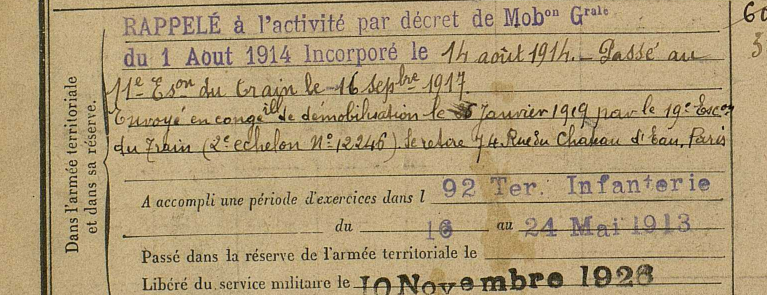 RAPPELÉ à l'activité par décret de Mobᵒⁿ Gʳᵃˡᵉ
du 1 Aout 1914 Incorporé le 14 août 1914. - Passé au
11ᵉ Esᵒⁿ du train le 16 Sepᵇʳᵉ 1917.
Envoyé en congé illᵉ de démobilisation le Janvier 1919 par le 19ᵉ Escᵒⁿ
du Train (2ᵉ echelon Nº 12246) Se retire 74 Rue du Chateau d'Eau, Paris
Dans l'armée territoriale
et dans sa réserve.
A accompli une période d'exercices dans l 92 Ter. Infanterie
du 16 au 24 Mai 1913
Passé dans la réserve de l'armée territoriale le
Libéré du service militaire le 10 Novembre 1926